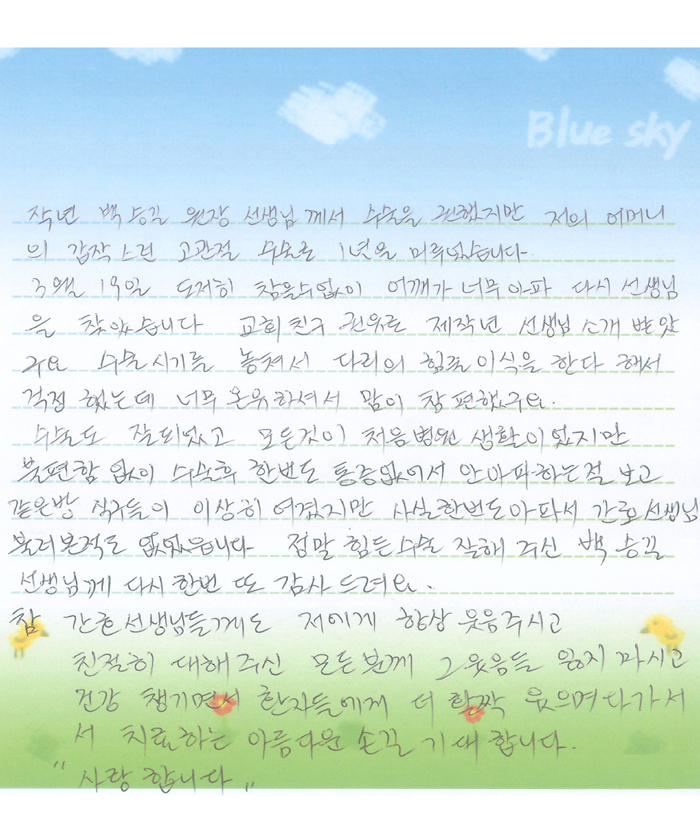 Blue sky
작년 백승길 원장 선생님께서 수술을 권했지만 저의 어머니
의 갑작스런 고관절 수술로 1년을 미루었습니다.
3월 19일 도저히 참을수없이 어깨가 너무 아파 다시 선생님
을 찾았습니다 교회친구 권유로 제작년 선생님 소개 받았
구요 수술시기를 놓쳐서 다리의 힘줄 이식을 한다 해서
걱정 했는데 너무 온유하셔서 맘이 참 편했구요.
수술도 잘되었고 모든것이 처음병원 생활이 였지만
불편함 없이 수술후 한번도 통증없어서 안아파하는걸 보고
같은방 식구들이 이상히 여겼지만 사실한번도아파서 간호선생님
불러본적도 없었습니다 정말 힘든수술 잘해 주신 백승길
선생님께 다시한번 또 감사 드려요.
참 간호선생님들께도 저에게 항상 웃음주시고
친절히 대해주신 모든분께 그웃음들 잃지 마시고
건강 챙기면서 환자들에게 더 활짝 웃으며다가서
서 치료하는 아름다운 손길 기대합니다.
"사랑합니다"